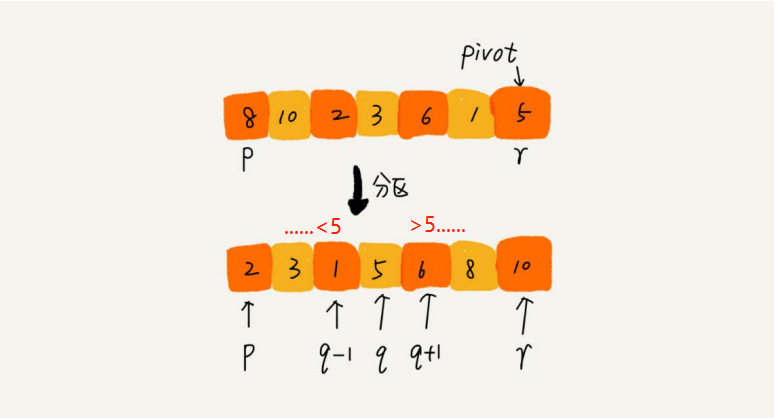 pivot
8 10 2 3 6 1 5
p r
分区
......<5 >5......
2 3 1 5 6 8 10
p q-1 q q+1 r